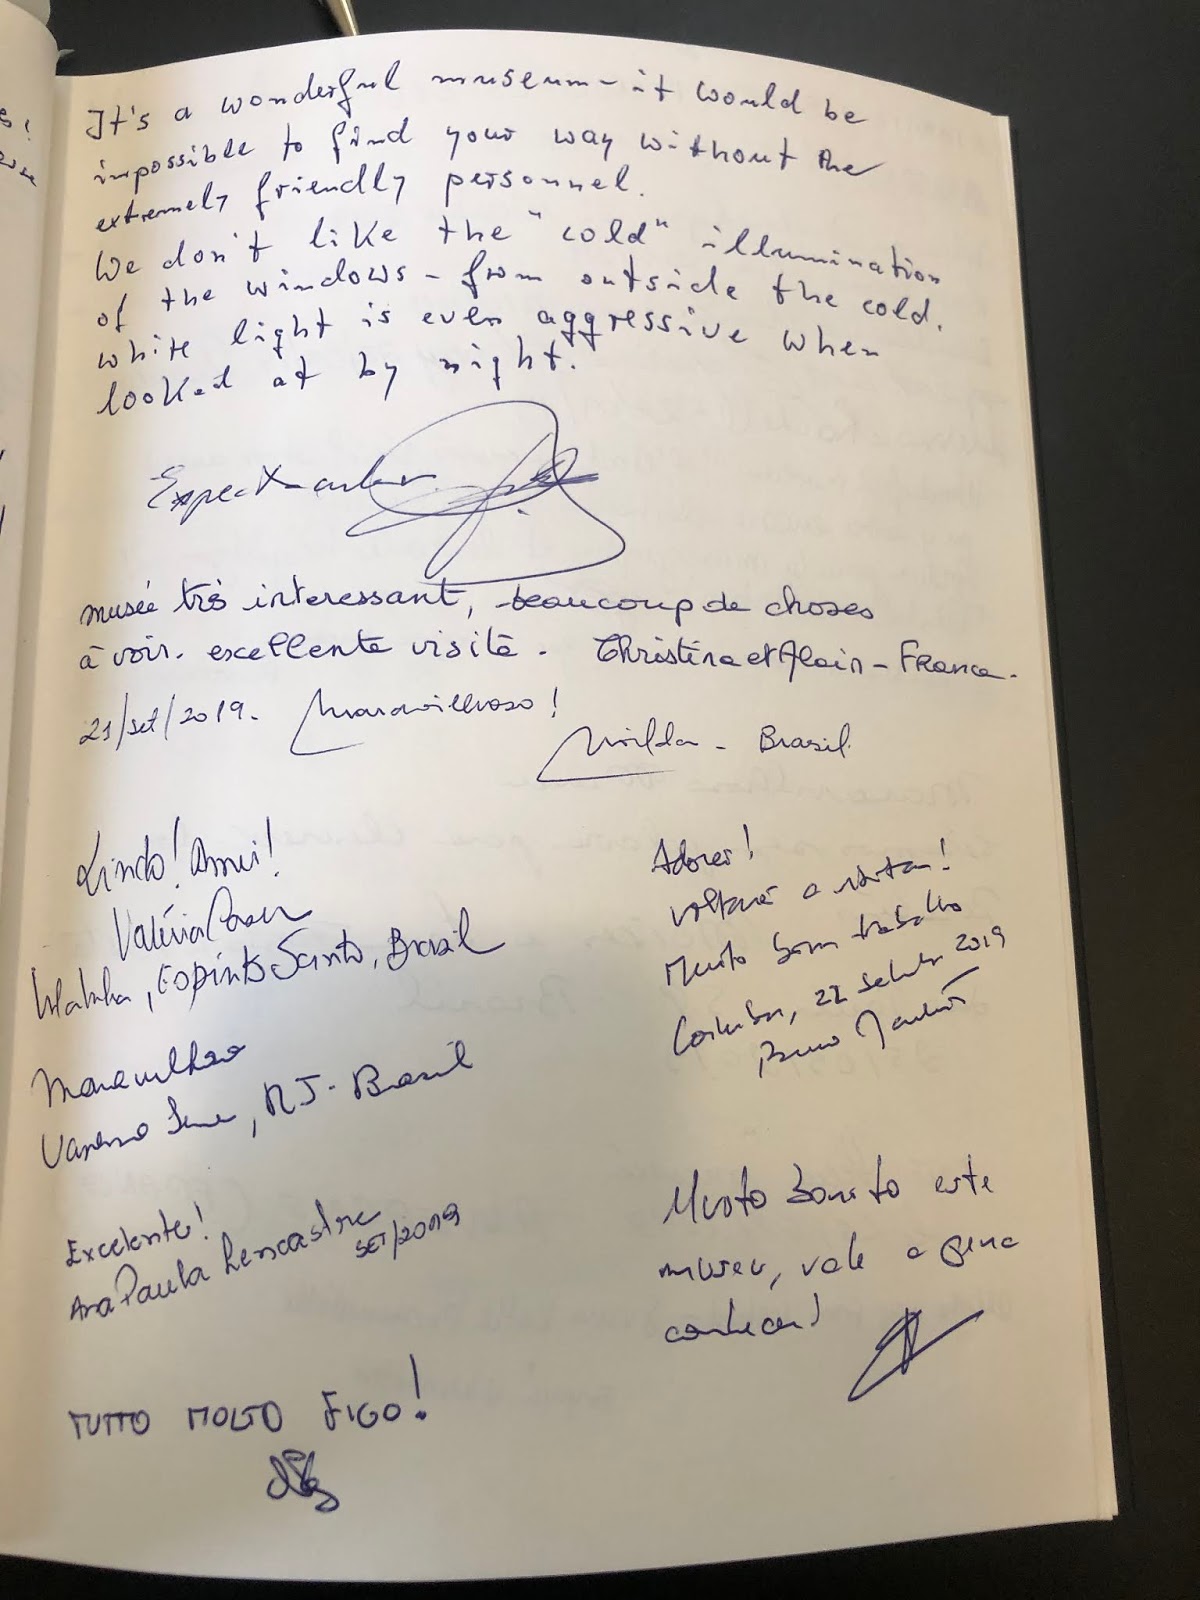 It's a wonderful museum - it would be
impossible to find your way without the
extremely friendly personnel.
We don't like the "cold" illumination
of the windows - from outside the cold.
white light is even aggressive when
looked at by night.
musée très interessant, beaucoup de choses
à voir. excellente visite. Christina et Alain - France.
21/set/2019. Maravilhoso!
Nilda - Brasil
Lindo! Amei!
Valéria
, Espírito Santo, Brasil
Maravilhoso
Vanessa, RJ - Brasil
Excelente!
Ana Paula Lencastre
SET/2019
TUTTO MOLTO FIGO!
Adorei!
Voltarei a visitar!
Muito bom trabalho
Coimbra, 22 setembro 2019
Bruno
Muito bonito este
museu, vale a pena
conhecer!